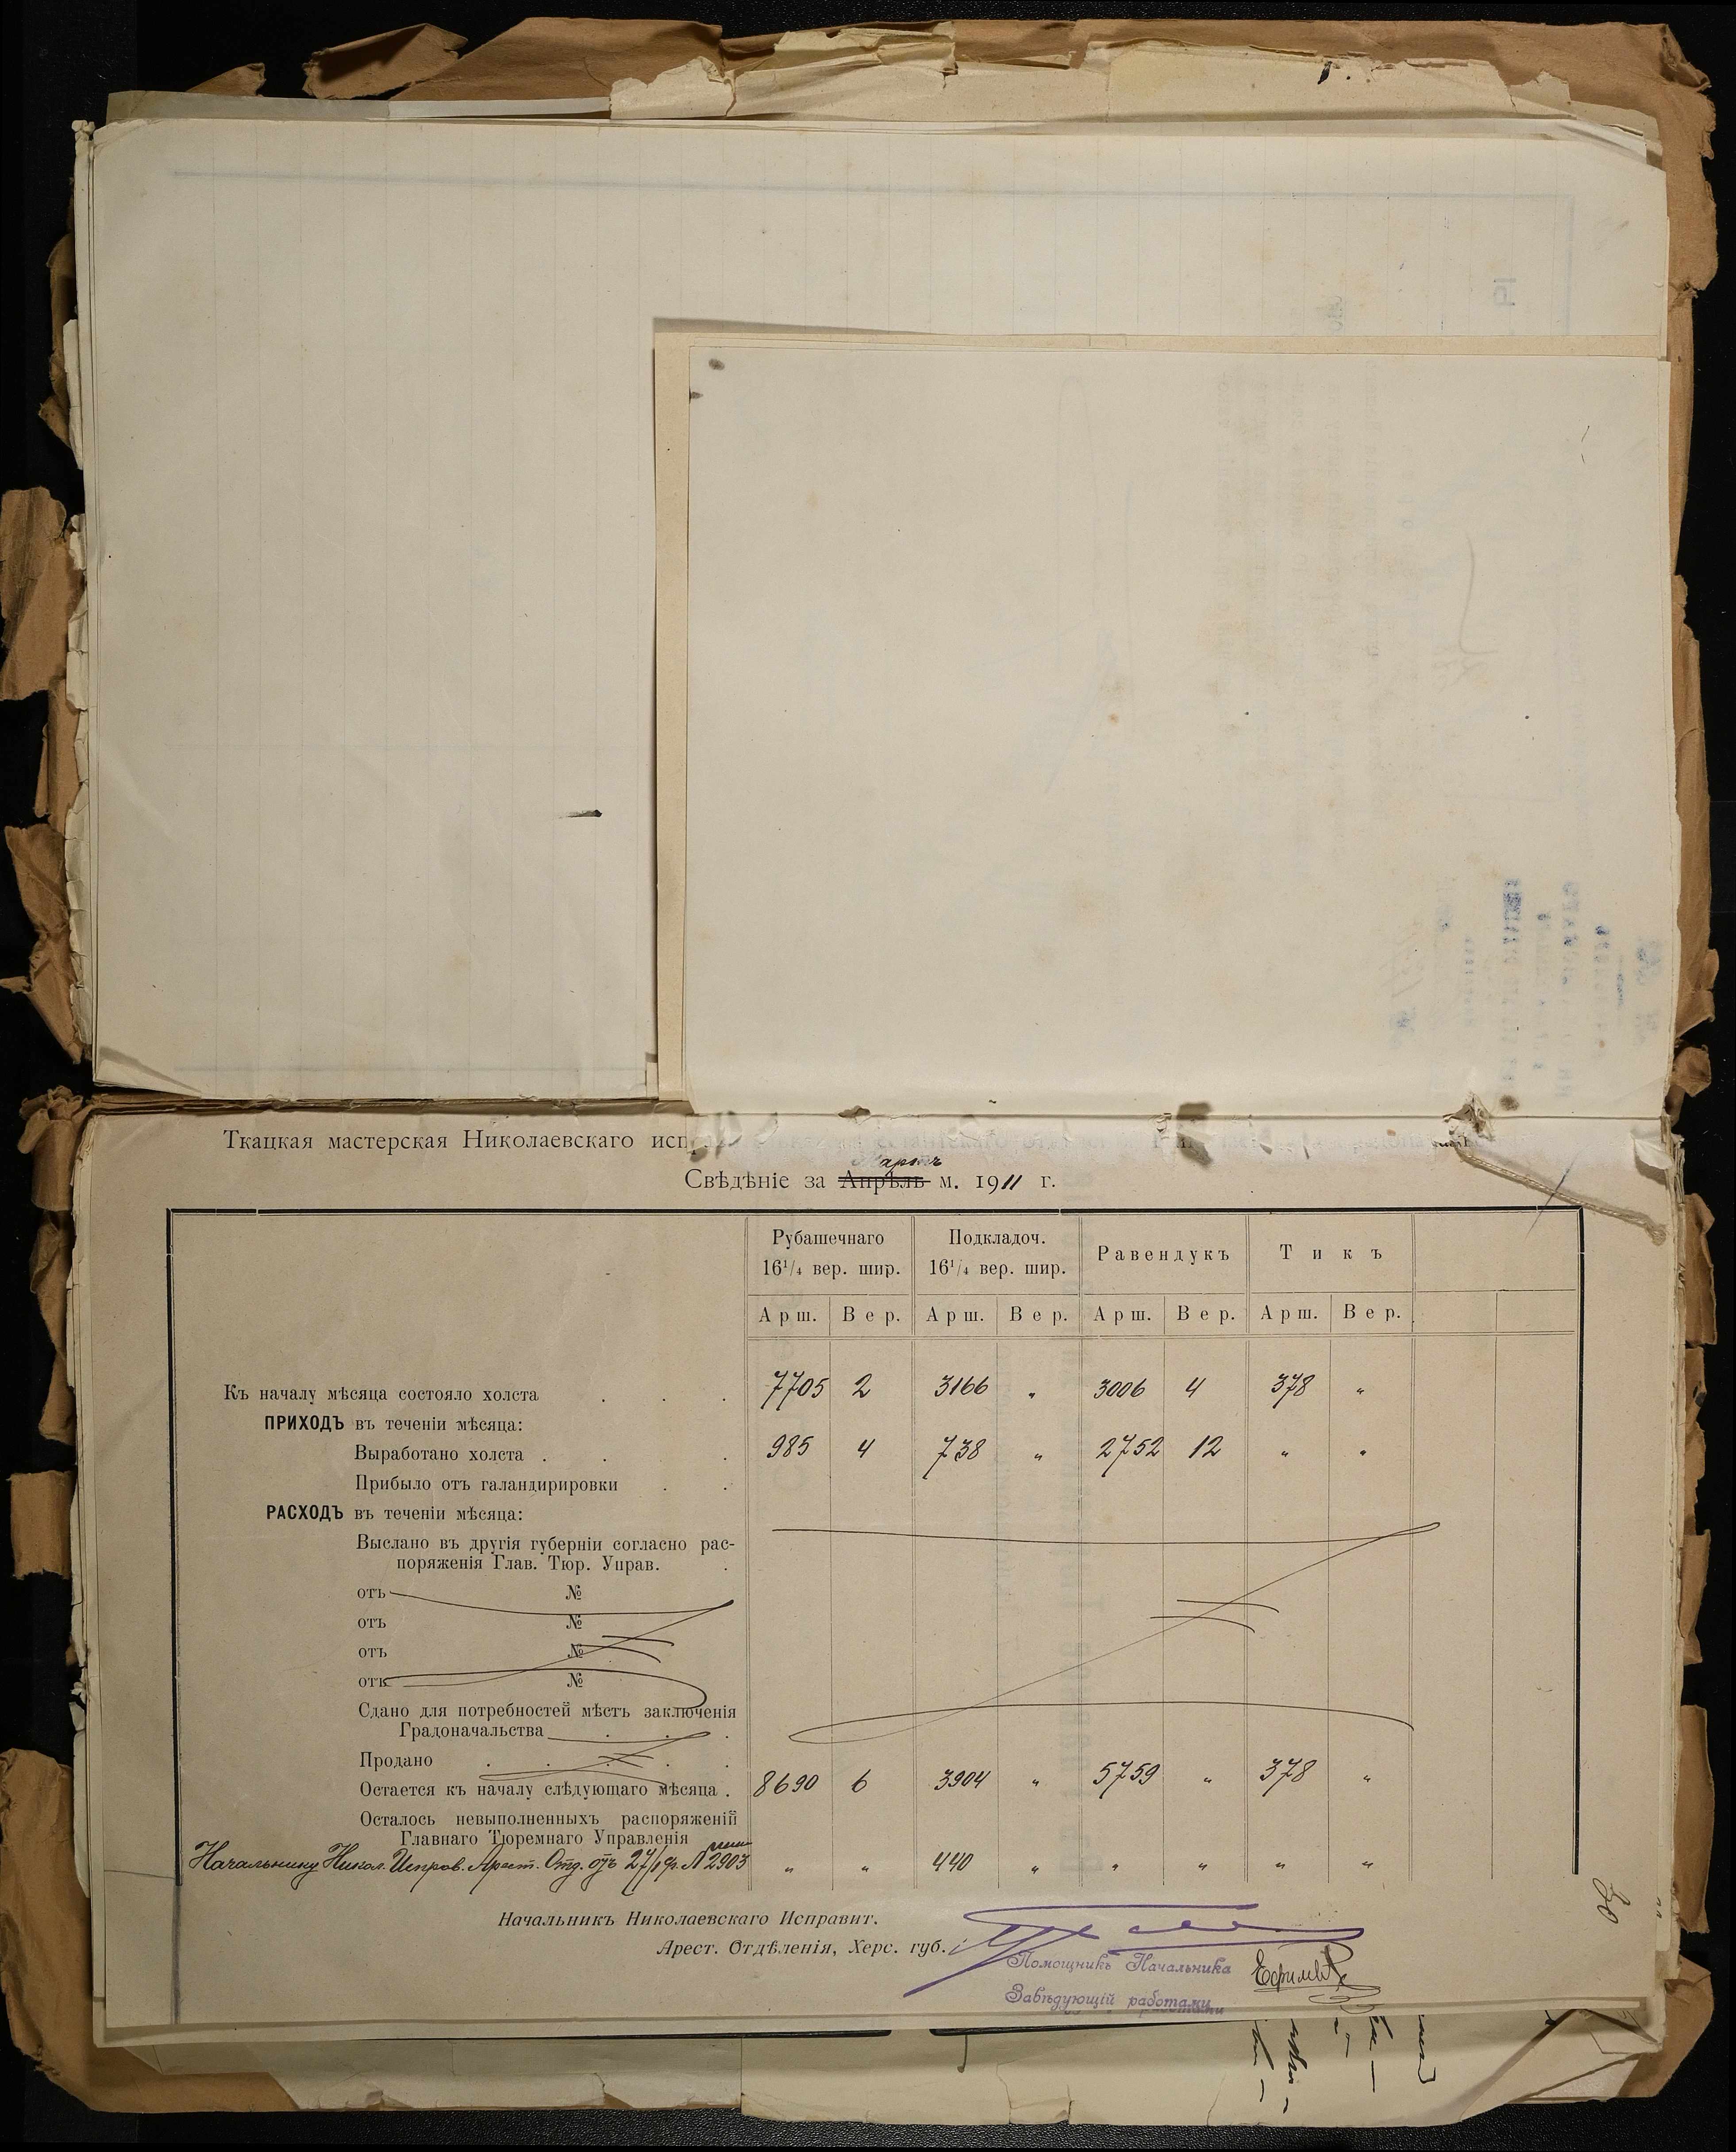 Ткацкая мастерская Николаевскаго исп
Мартъ
Свѣдѣніе за Апрѣль м. 1911 г.
Рубашечнаго 16¹/₄ вер. шир. Подкладоч. 16¹/₄ вер. шир. Равендукъ Тикъ
Арш. Вер. Арш. Вер. Арш. Вер. Арш. Вер.
Къ началу мѣсяца состояло холста . . . 7705 2 3166 " 3006 4 378 "
ПРИХОДЪ въ теченіи мѣсяца:
Выработано холста . . . 985 4 738 " 2752 12 " "
Прибыло отъ галандирировки . .
РАСХОДЪ въ теченіи мѣсяца:
Выслано въ другія губерніи согласно рас-
поряженія Глав. Тюр. Управ. .
отъ №
отъ №
отъ №
отъ №
Сдано для потребностей мѣстъ заключенія
Градоначальства . . .
Продано . . . . .
Остается къ началу слѣдующаго мѣсяца . 8690 6 3904 " 5759 " 378 "
Осталось невыполненныхъ распоряженій
Главнаго Тюремнаго Управленія
Начальнику Никол. Исправ. Арест. Отд. отъ 27/ № 2903 " " 440 " " " " "
Начальникъ Николаевскаго Исправит.
Арест. Отдѣленія, Херс. губ.
Помощникъ Начальника
Завѣдующій работами
30